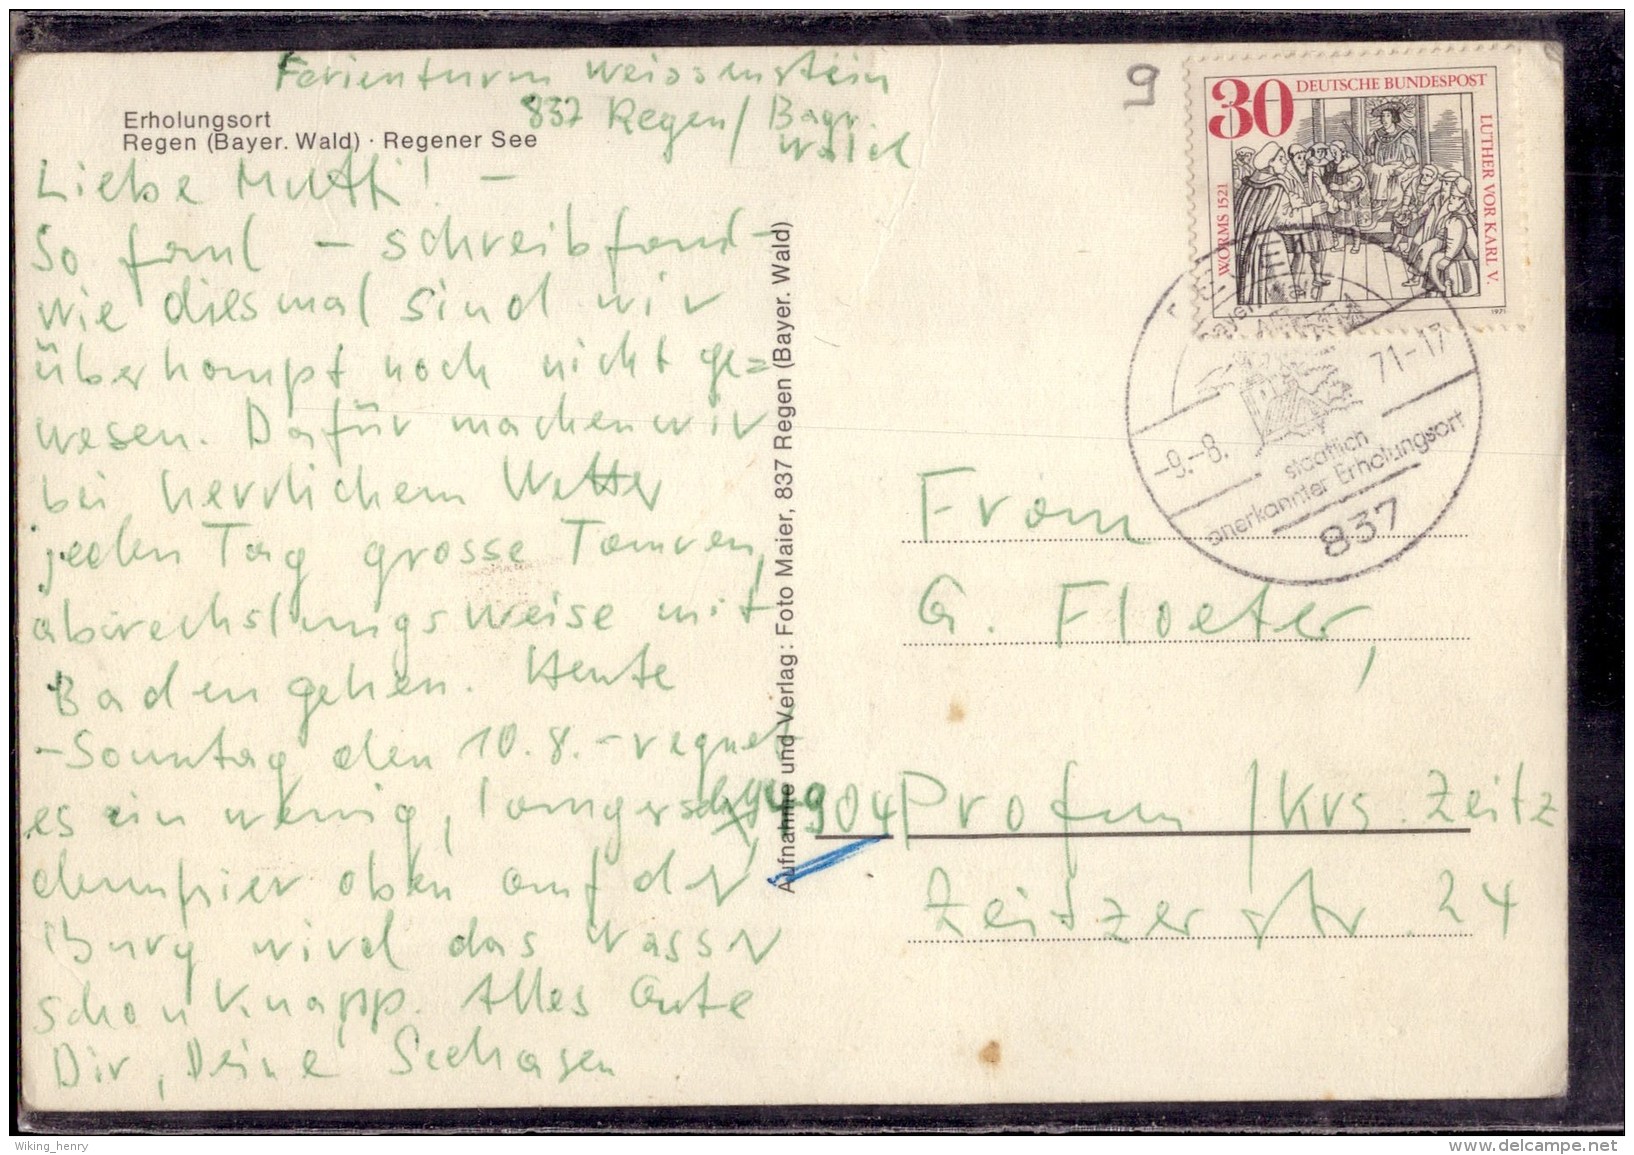 Ferienturm Weissenstein
837 Regen / Bayr.
Wald
Erholungsort
Regen (Bayer. Wald) · Regener See
Liebe Mutti! -
So faul - schreibfaul -
wie diesmal sind wir
überhaupt noch nicht ge=
wesen. Dafür machen wir
bei herrlichem Wetter
jeden Tag grosse Touren,
abwechslungsweise mit
Baden gehen. Heute
- Sonntag den 10.8. - regnet
es ein wenig,
hier oben auf der
Burg wird das Wasser
schon knapp. Alles Gute
Dir, Deine Seehasen
Aufnahme und Verlag: Foto Maier, 837 Regen (Bayer. Wald)
9
30 DEUTSCHE BUNDESPOST
LUTHER VOR KARL V.
WORMS 1521
1971
-9.-8. 71-17
staatlich
anerkannter Erholungsort
837
Frau
G. Floeter,
4904 Profen / Krs. Zeitz
Zeitzer Str. 24
Wiking_henry
www.delcampe.net